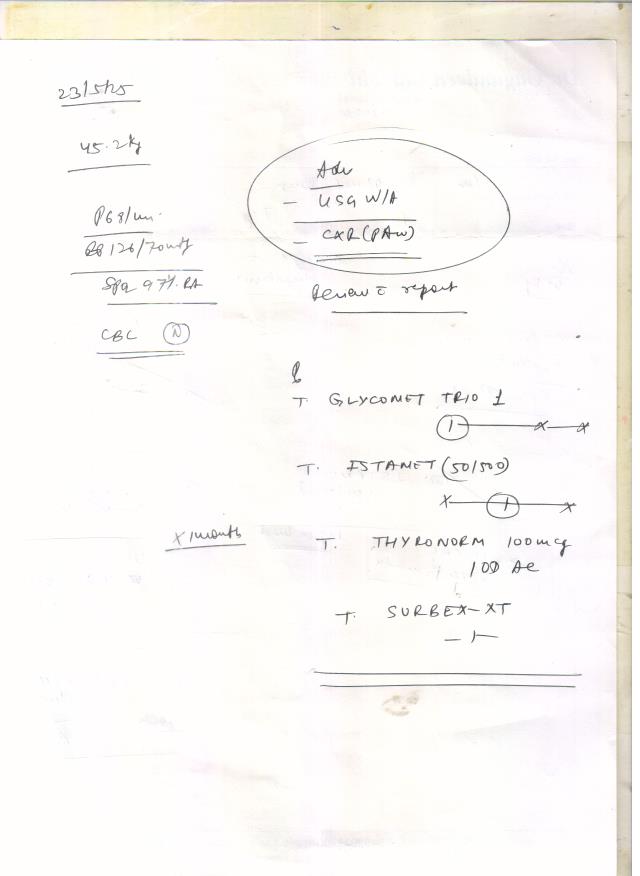 23/5/25
45.2kg
Adv
- USG W/A
- CXR (PAW)
P 68/min.
BP 126/70mmHg
SpO2 97% RA
Review c̄ report
CBC (N)
T. GLYCOMET TRIO 1
1 — x — x
T. ISTAMET (50/500)
x — 1 — x
x 1 month
T. THYRONORM 100mcg
1 OD AC
T. SURBEX-XT
- 1 -